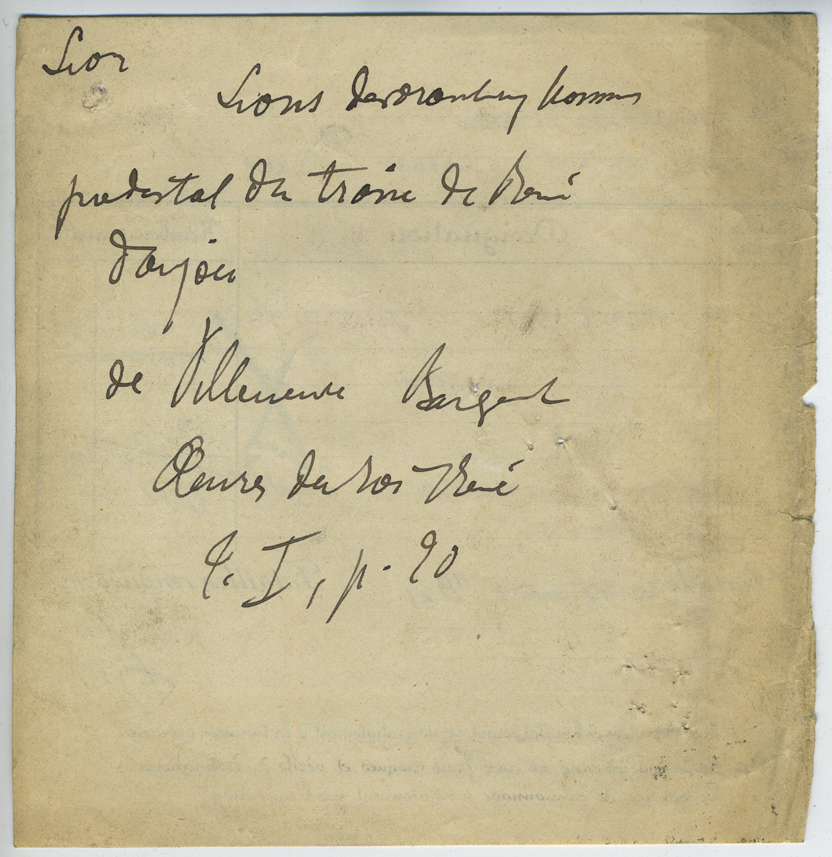 Lion
Lions dévorant des hommes
piédestal du trône de René
d'anjou
de Villeneuve Bargemont
Œuvres du roi René
t. I, p. 20